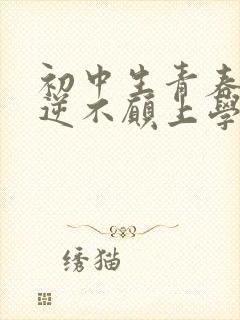 初中生青春
逆不顾上学
绣猫